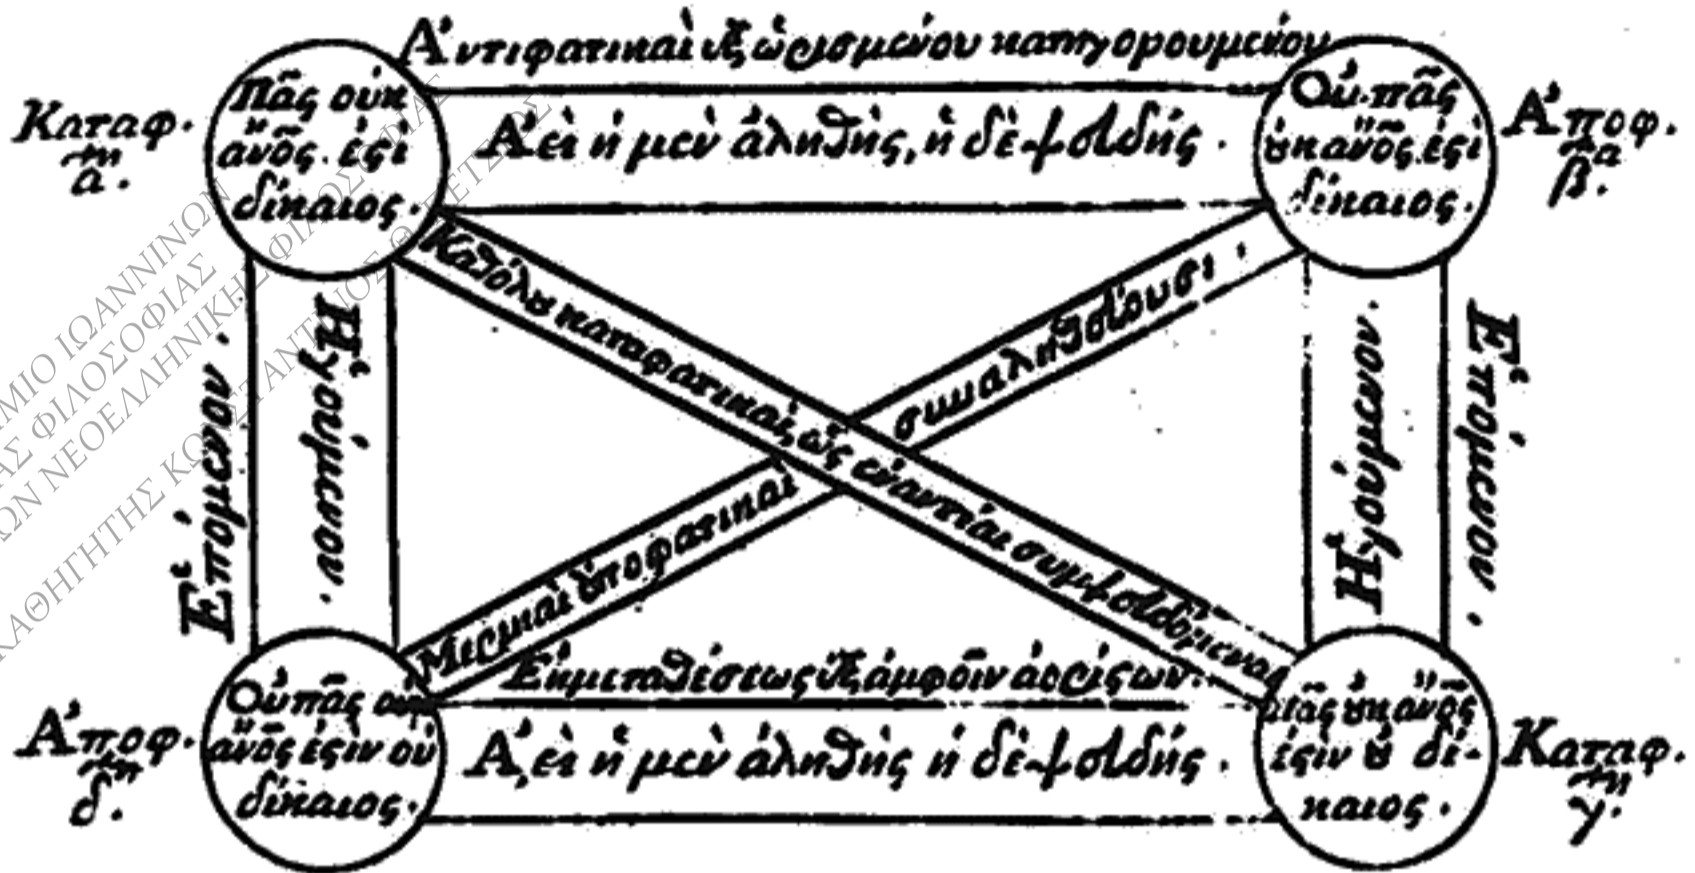 Ἀντιφατικαὶ ἐξ ὡρισμένου κατηγορουμένου
Καταφ.
α.
Πᾶς οὐκ
ἄνος. ἐςὶ
δίκαιος.
Ἀεὶ ἡ μὲν ἀληθὴς, ἡ δὲ ψευδής.
Οὐ πᾶς
ȣ̓κ ἄνος. ἐςὶ
δίκαιος.
Ἀποφ.
β.
Ἑπόμενον.
Ἡγούμενον.
Καθόλȣ καταφατικαὶ, ὡς ἐναντίαι συμψευδόμεναι
Μερικαὶ ἀποφατικαὶ συναληθεύουσι.
Ἡγούμενον.
Ἑπόμενον.
Ἐκ μεταθέσεως ἐξ ἀμφοῖν ἀορίςων.
Ἀποφ.
δ.
Οὐ πᾶς οὐκ
ἄνος ἐςὶν οὐ
δίκαιος.
Ἀεὶ ἡ μὲν ἀληθὴς ἡ δὲ ψευδής.
πᾶς ȣ̓κ ἄνος
ἐςιν ȣ̓ δί-
καιος.
Καταφ.
γ.
ΦΙΛΟΣΟΦΙΑΣ
ΝΕΟΕΛΛΗΝΙΚΗΣ ΦΙΛΟΣΟΦΙΑΣ
ΚΑΘΗΓΗΤΗΣ ΚΩΝΣΤΑΝΤΙΝΟΣ Θ. ΠΕΤΣΙΟΣ